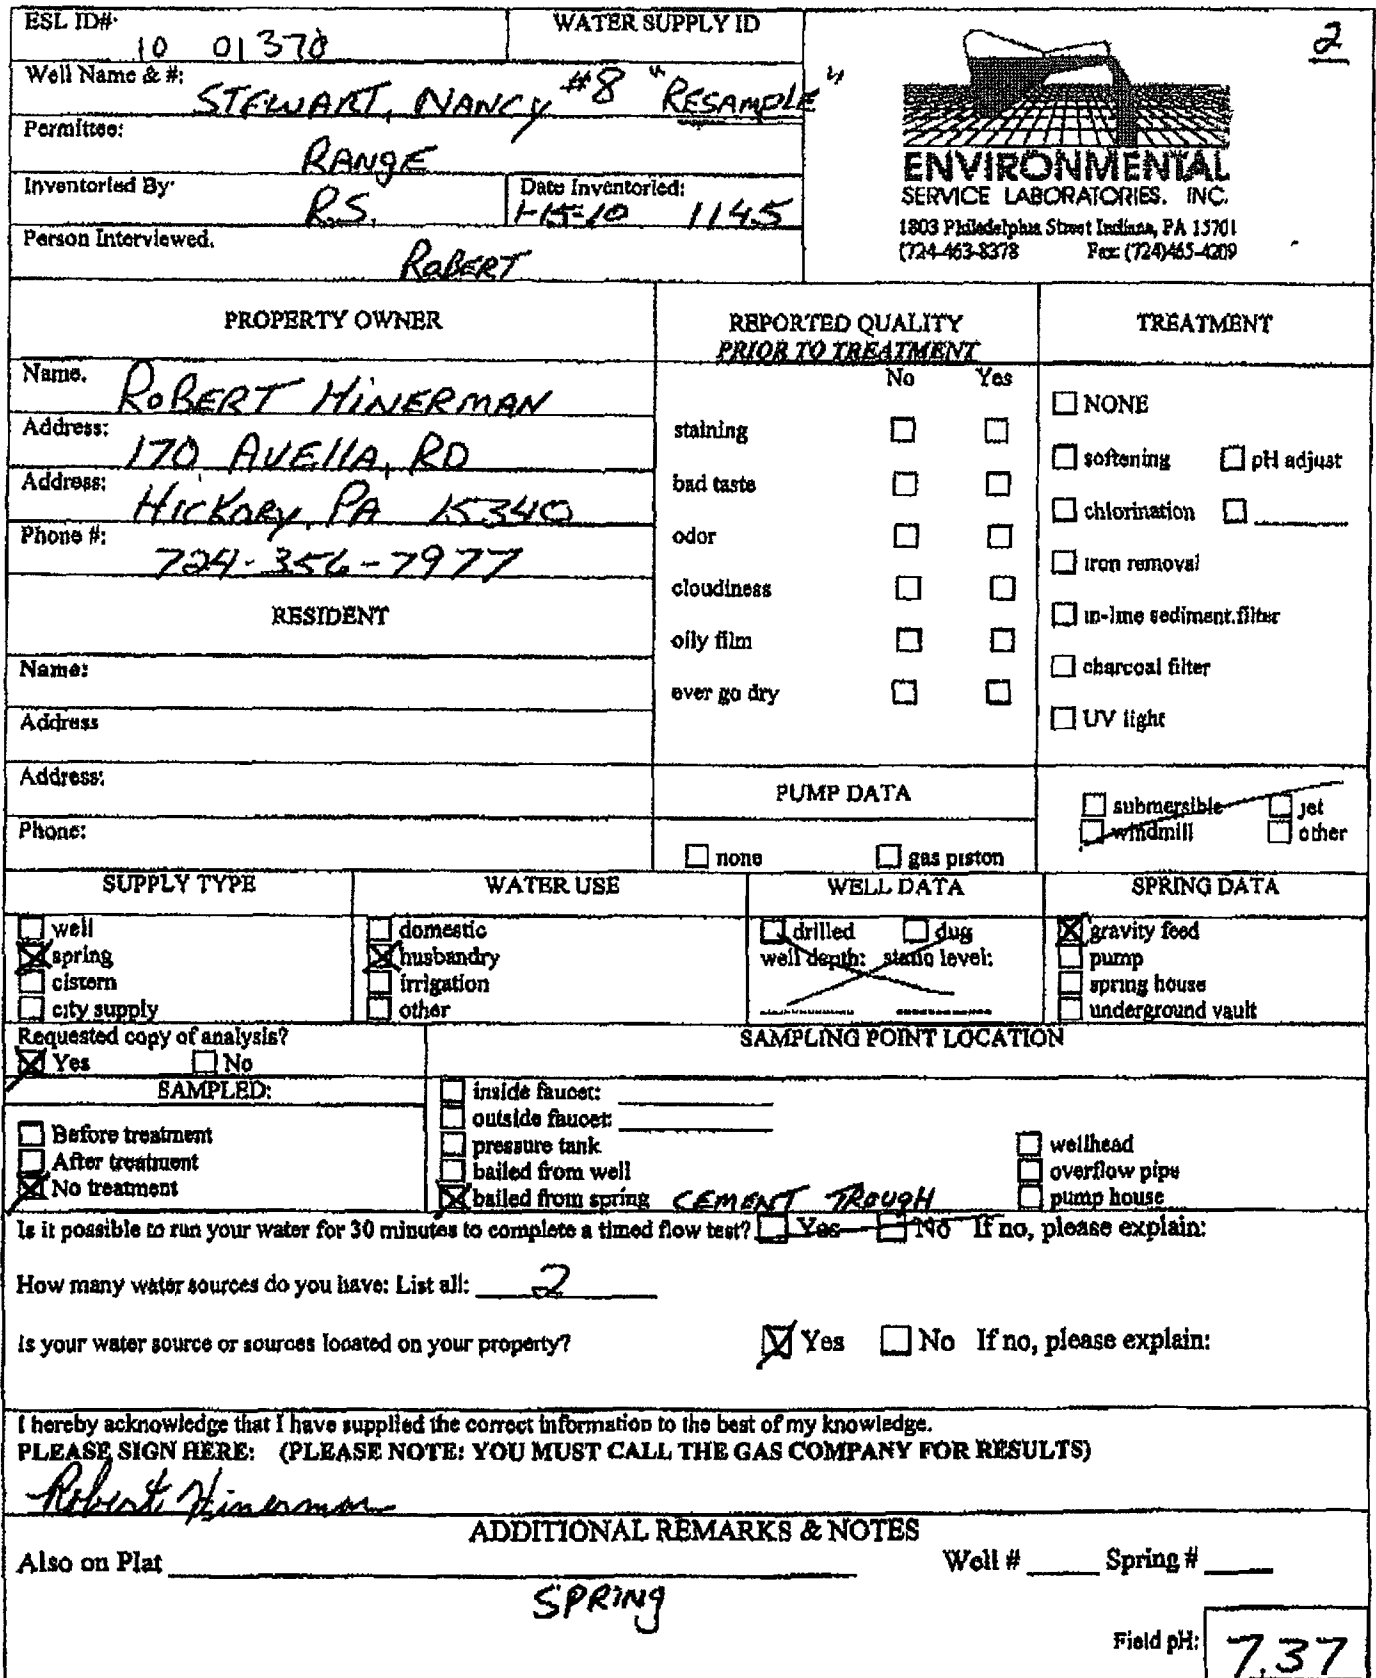 ESL ID#: 10 01370
WATER SUPPLY ID
2
Well Name & #: STEWART, NANCY #8 "RESAMPLE"
Permittee: RANGE
Inventoried By: R.S.
Date Inventoried: 1-15-10 1145
Person Interviewed. ROBERT
ENVIRONMENTAL
SERVICE LABORATORIES, INC.
1803 Philadelphia Street Indiana, PA 15701
(724-463-8378 Fax: (724)465-4209
PROPERTY OWNER
Name. ROBERT HINERMAN
Address: 170 AVELLA, RD
Address: HICKORY, PA 15340
Phone #: 724-356-7977
RESIDENT
Name:
Address
Address:
Phone:
REPORTED QUALITY
PRIOR TO TREATMENT
No Yes
staining
bad taste
odor
cloudiness
oily film
ever go dry
TREATMENT
NONE
softening pH adjust
chlorination
iron removal
in-line sediment.filter
charcoal filter
UV light
PUMP DATA
none gas piston
submersible jet
windmill other
SUPPLY TYPE
well
spring
cistern
city supply
WATER USE
domestic
husbandry
irrigation
other
WELL DATA
drilled dug
well depth: static level:
SPRING DATA
gravity feed
pump
spring house
underground vault
Requested copy of analysis?
Yes No
SAMPLED:
Before treatment
After treatment
No treatment
SAMPLING POINT LOCATION
inside faucet:
outside faucet:
pressure tank
bailed from well
bailed from spring CEMENT TROUGH
wellhead
overflow pipe
pump house
Is it possible to run your water for 30 minutes to complete a timed flow test? Yes No If no, please explain:
How many water sources do you have: List all: 2
Is your water source or sources located on your property? Yes No If no, please explain:
I hereby acknowledge that I have supplied the correct information to the best of my knowledge.
PLEASE SIGN HERE: (PLEASE NOTE: YOU MUST CALL THE GAS COMPANY FOR RESULTS)
Robert Hinerman
ADDITIONAL REMARKS & NOTES
Also on Plat Well # Spring #
SPRING
Field pH: 7.37